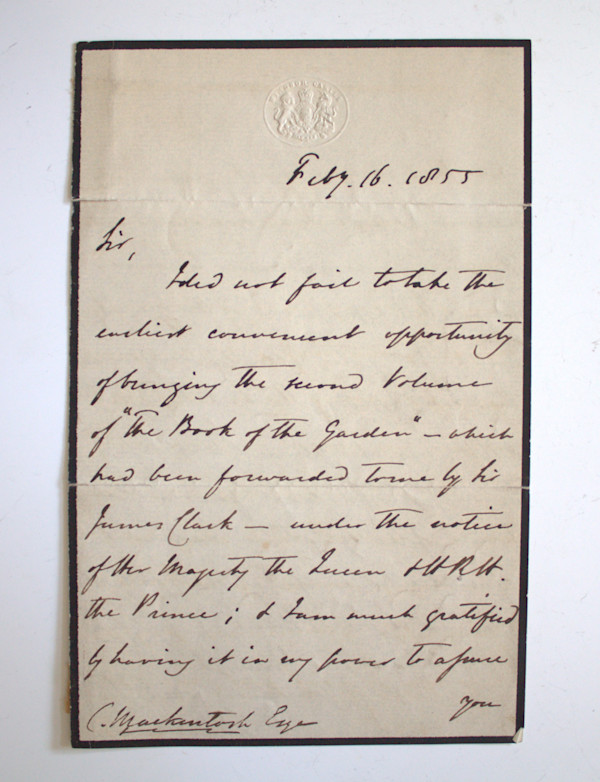 Feby. 16. 1855
Sir,
I did not fail to take the
earliest convenient opportunity
of bringing the second Volume
of "The Book of the Garden" – which
had been forwarded to me by Sir
James Clark – under the notice
of Her Majesty the Queen & H.R.H.
the Prince; & I am much gratified
by having it in my power to assure
you
C. Mackintosh Esqe